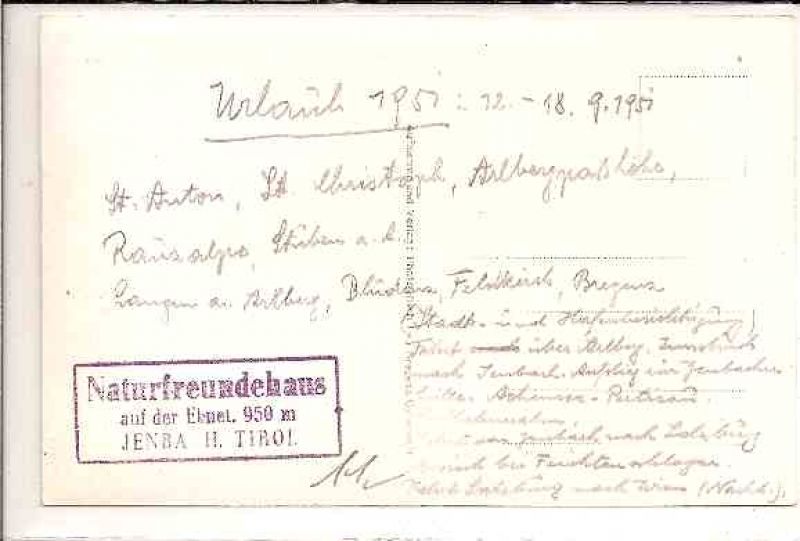 Urlaub 1951: 12.-18. 9. 1951
St. Anton, St. Christoph, Arlbergpaßhöhe,
Rauzalpe, Stuben a. A.
Langen a. Arlberg, Bludenz, Feldkirch, Bregenz
(Stadt- und Hafenbesichtigung)
Fahrt über Arlberg, Innsbruck
nach Jenbach. Aufstieg zur
Achensee - Pertisau.
Jenbach nach Salzburg
Besuch bei
Salzburg nach Wien (Nacht.).
Naturfreundehaus
auf der Ebnet. 950 m
JENBA H. TIROL